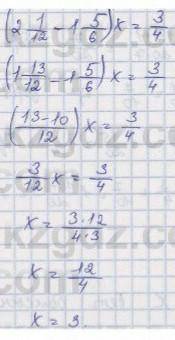 (2 1/12 - 1 5/6) x = 3/4
(1 13/12 - 1 5/6) x = 3/4
((13-10)/12) x = 3/4
3/12 x = 3/4
x = (3·12)/(4·3)
x = 12/4
x = 3.